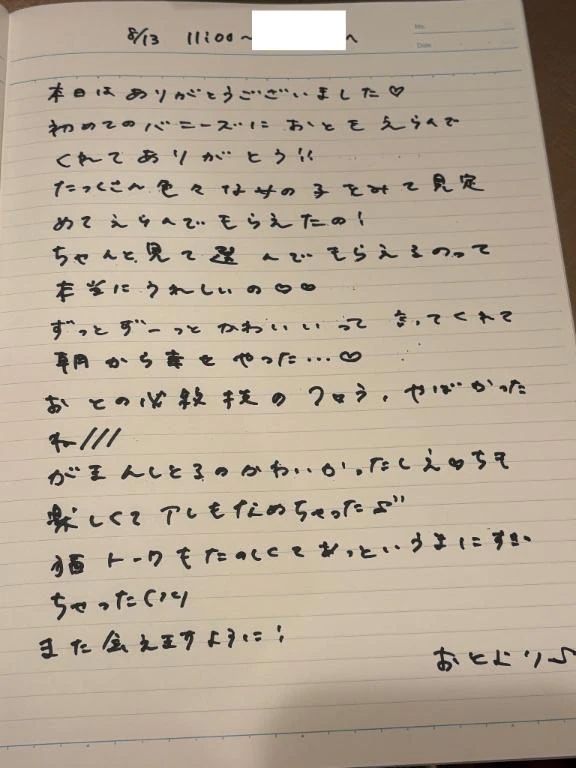 8/13 11:00~ へ
No.
Date
本日はありがとうございました♡
初めてのバニーズにおとをえらんで
くれてありがとう!!
たっくさん色々な女の子をみて見定
めてえらんでもらえたの!
ちゃんと見て選んでもらえるのって
本当にうれしいの♡♡
ずっとずーっとかわいいって言ってくれて
朝から幸せやった…♡
おとの必殺技のフェラ、やばかった
ね///
がまんしとるのかわいかったしえ♡ちで
楽しくてアレもなめちゃった♪
猫トークもたのしくてあっというまにすぎ
ちゃった(;;)
また会えますように!
おとより♪